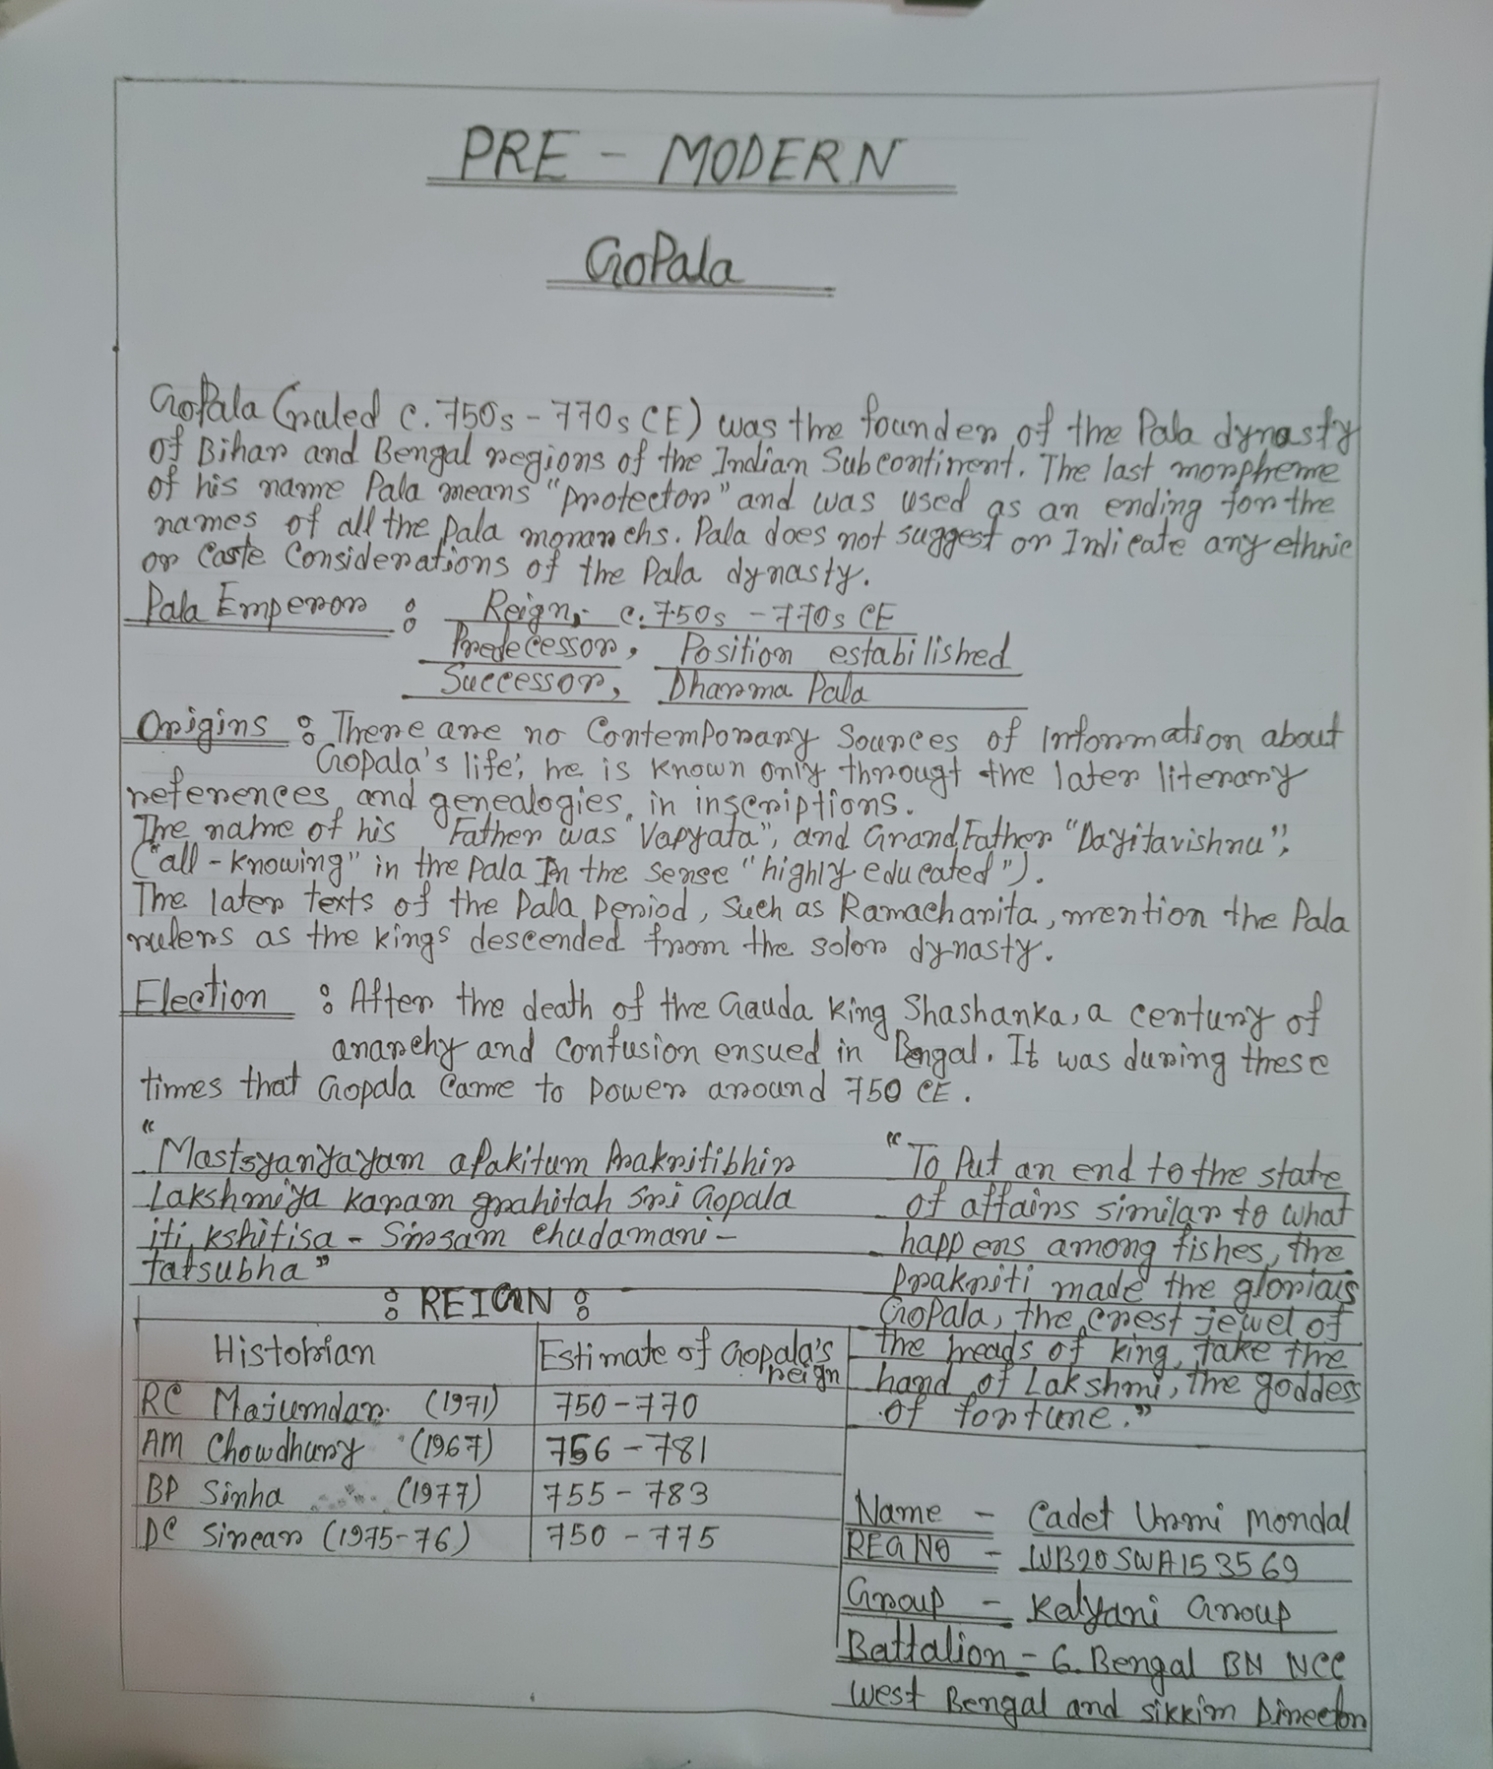 PRE - MODERN
GoPala
GoPala (ruled c. 750s - 770s CE) was the founder of the Pala dynasty
of Bihar and Bengal regions of the Indian Subcontinent. The last morpheme
of his name Pala means "protector" and was used as an ending for the
names of all the Pala monarchs. Pala does not suggest or Indicate any ethnic
or Caste Considerations of the Pala dynasty.
Pala Emperor : Reign, c. 750s - 770s CE
Predecessor, Position estabilished
Successor, Dharma Pala
Origins : There are no Contemporary Sources of Information about
Gopala's life; he is known only througt the later literary
references, and genealogies, in inscriptions.
The name of his Father was "Vapyata", and GrandFather "Dayitavishnu";
("all - knowing" in the Pala In the sense "highly educated").
The later texts of the Pala Period, such as Ramacharita, mention the Pala
rulers as the kings descended from the solor dynasty.
Election : After the death of the Gauda king Shashanka, a century of
anarchy and confusion ensued in Bengal. It was during these
times that Gopala Came to power around 750 CE.
"Mastsyanyayam apakitum Prakritibhir
Lakshmiya karam grahitah Sri Gopala
iti kshitisa - Sirsam chudamani -
tatsubha"
"To Put an end to the state
of affairs similar to what
happens among fishes, the
Prakriti made the glorious
GoPala, the crest jewel of
the heads of king, take the
hand of Lakshmi, the goddess
of fortune."
: REIGN :
Historian Estimate of Gopala's reign
RC Majumdar (1971) 750 - 770
AM Chowdhury (1967) 756 - 781
BP Sinha (1977) 755 - 783
DC Sircar (1975-76) 750 - 775
Name - Cadet Urmi Mondal
REG NO - WB20SWA153569
Group - Kalyani Group
Battalion - 6 Bengal BN NCC
West Bengal and Sikkim Director